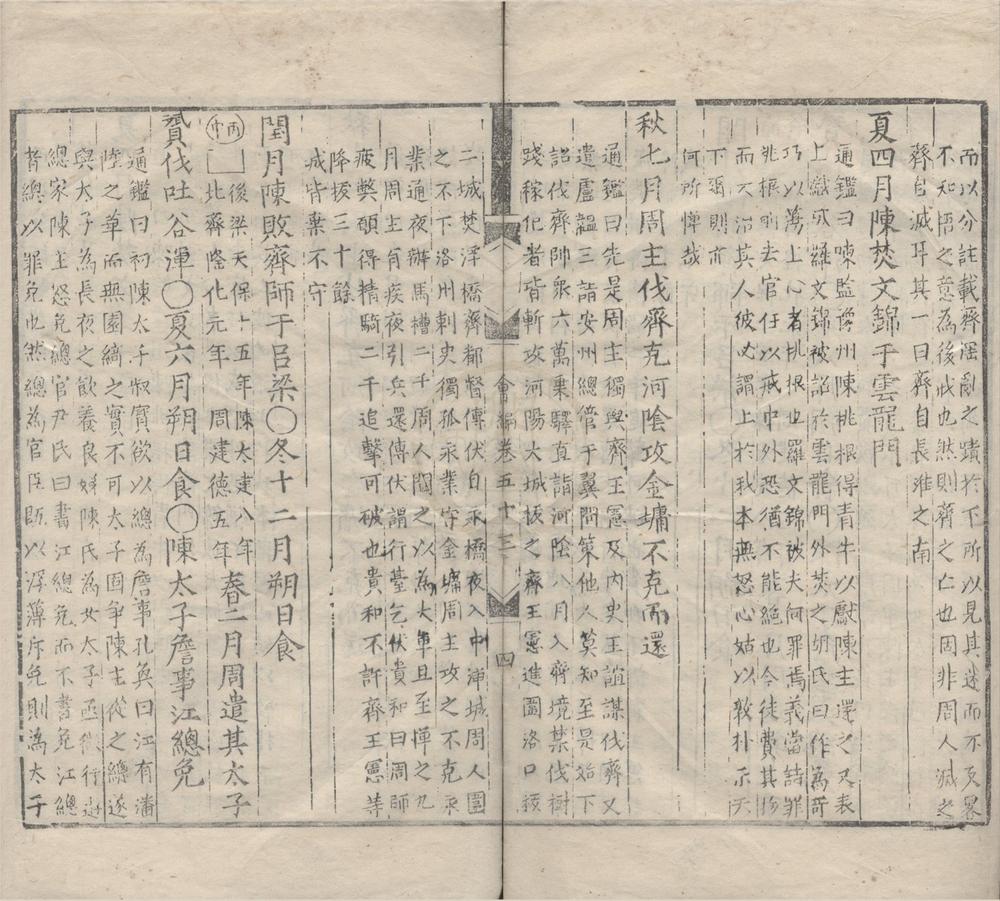 而以分註載齊淫亂之蹟於下所以見其迷而不反畧
不知悟之意為後戒也然則齊之亡也固非周人滅之
齊自滅耳其一曰齊自長淮之南
夏四月陳焚文錦于雲龍門
通鑑曰陳監豫州陳桃根得青牛以獻陳主還之又表
上織成羅文錦被詔於雲龍門外焚之胡氏曰作為奇
巧以蕩上心者桃根也羅文錦被夫何罪焉義當詰罪
桃根削去官任以戒中外恐猶不能絶也今徒費其物
而不治其人彼必謂上於我本無怒心姑以敦朴示天
下爾則亦
何所憚哉
秋七月周主伐齊克河陰攻金墉不克而還
通鑑曰先是周主獨與齊王憲及内史王誼謀伐齊又
遣盧韞三詣安州總管于翼問策他人莫知至是始下
詔伐齊帥衆六萬棄驛直詣河陰八月入齊境禁伐樹
踐稼犯者皆斬攻河陽大城拔之齊王憲進圍洛口拔
會編卷五十三
四
二城焚浮橋齊都督傅伏自永橋夜入中潬城周人圍
之不下洛州刺史獨孤永業守金墉周主攻之不克永
業通夜辦馬槽二千周人聞之以為大軍且至憚之九
月周主有疾夜引兵還傅伏謂行臺乞伏貴和曰周師
疲弊願得精騎二千追擊可破也貴和不許齊王憲等
降拔三十餘
城皆棄不守
閏月陳敗齊師于呂梁〇冬十二月朔日食
丙申
後梁天保十五年陳太建八年
北齊隆化元年 周建德五年
春二月周遣其太子
贇伐吐谷渾〇夏六月朔日食〇陳太子詹事江總免
通鑑曰初陳太子叔寶欲以總為詹事孔奐曰江有潘
陸之華而無園綺之實不可太子固爭陳主從之總遂
與太子為長夜之飲養良娣陳氏為女太子亟微行遊
總家陳主怒免總官尹氏曰書江總免而不書免江總
者總以罪免也然總為官臣既以浮薄斥免則為太子